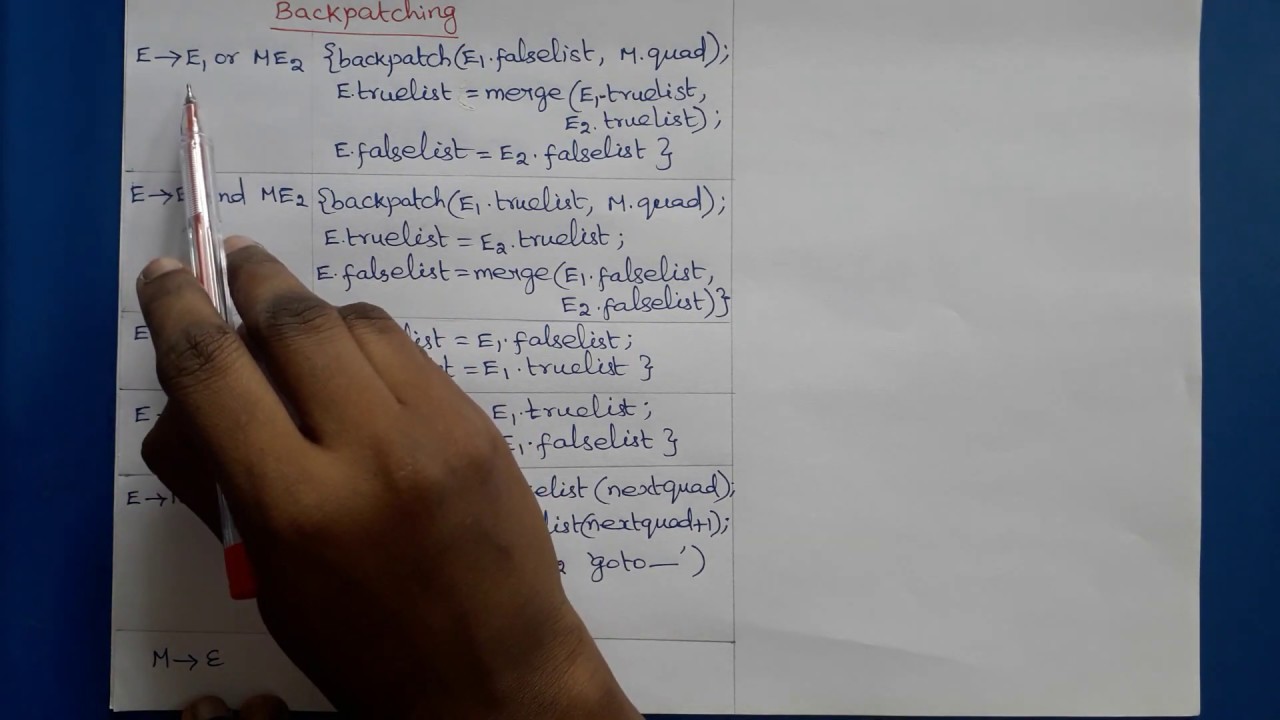 Backpatching
E→E₁ or ME₂ {backpatch(E₁.falselist, M.quad);
E.truelist = merge(E₁.truelist,
E₂.truelist);
E.falselist = E₂.falselist }
E→ ME₂ {backpatch(E₁.truelist, M.quad);
E.truelist = E₂.truelist;
E.falselist = merge(E₁.falselist,
E₂.falselist)}
E = E₁.falselist;
= E₁.truelist }
E E₁.truelist;
E₁.falselist }
E→ (nextquad);
(nextquad+1);
goto—')
M→ε